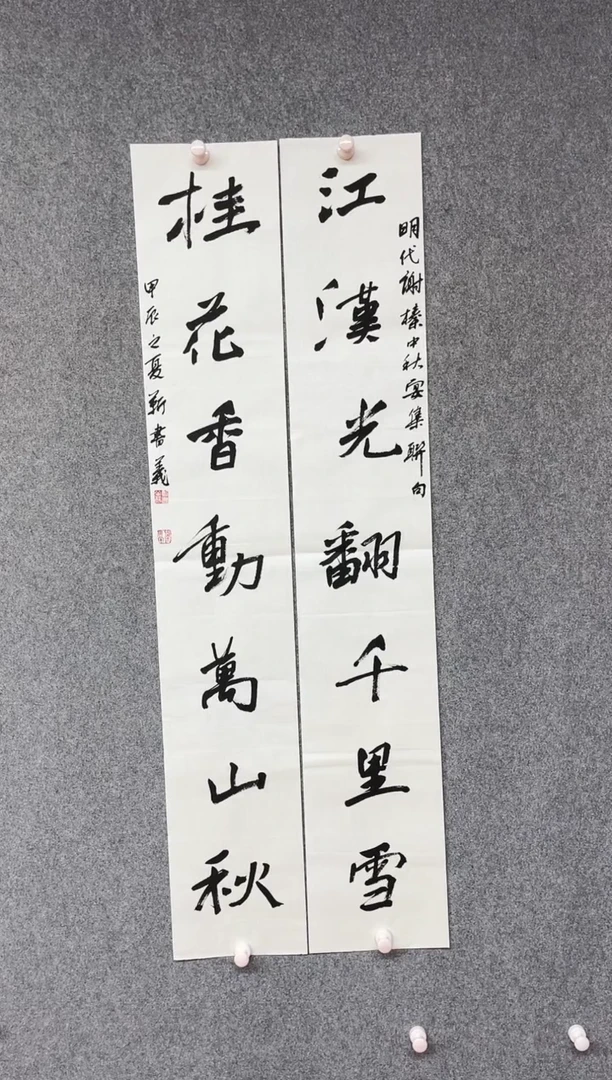 明代謝榛中秋宴集聯句
江漢光翻千里雪
桂花香動萬山秋
甲辰之夏靳書義